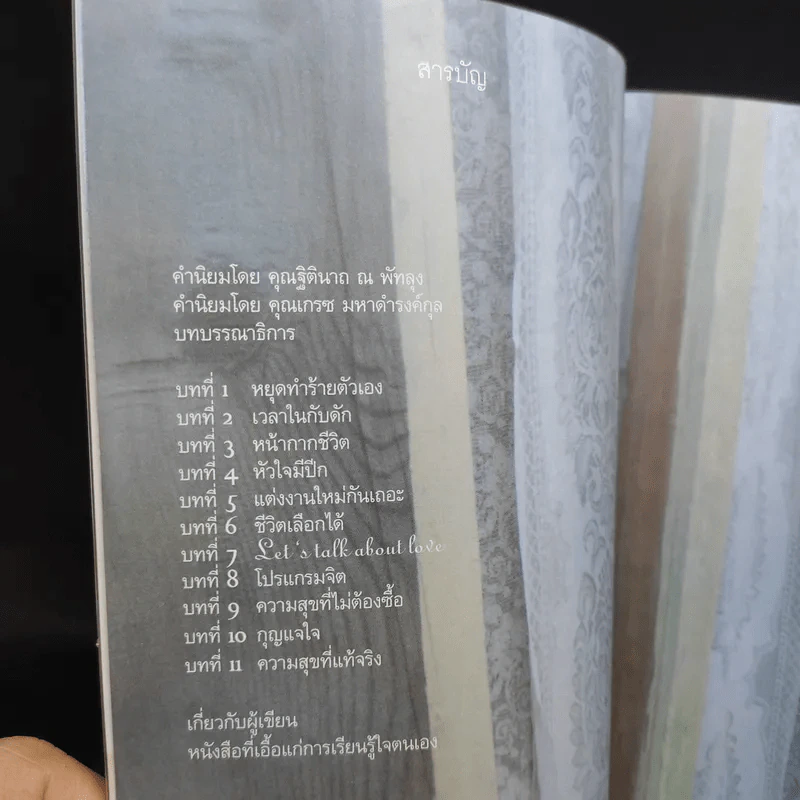 สารบัญ
คำนิยมโดย คุณฐิตินาถ ณ พัทลุง
คำนิยมโดย คุณเกรซ มหาดำรงค์กุล
บทบรรณาธิการ
บทที่ 1 หยุดทำร้ายตัวเอง
บทที่ 2 เวลาในกับดัก
บทที่ 3 หน้ากากชีวิต
บทที่ 4 หัวใจมีปีก
บทที่ 5 แต่งงานใหม่กันเถอะ
บทที่ 6 ชีวิตเลือกได้
บทที่ 7 Let's talk about love
บทที่ 8 โปรแกรมจิต
บทที่ 9 ความสุขที่ไม่ต้องซื้อ
บทที่ 10 กุญแจใจ
บทที่ 11 ความสุขที่แท้จริง
เกี่ยวกับผู้เขียน
หนังสือที่เอื้อแก่การเรียนรู้ใจตนเอง